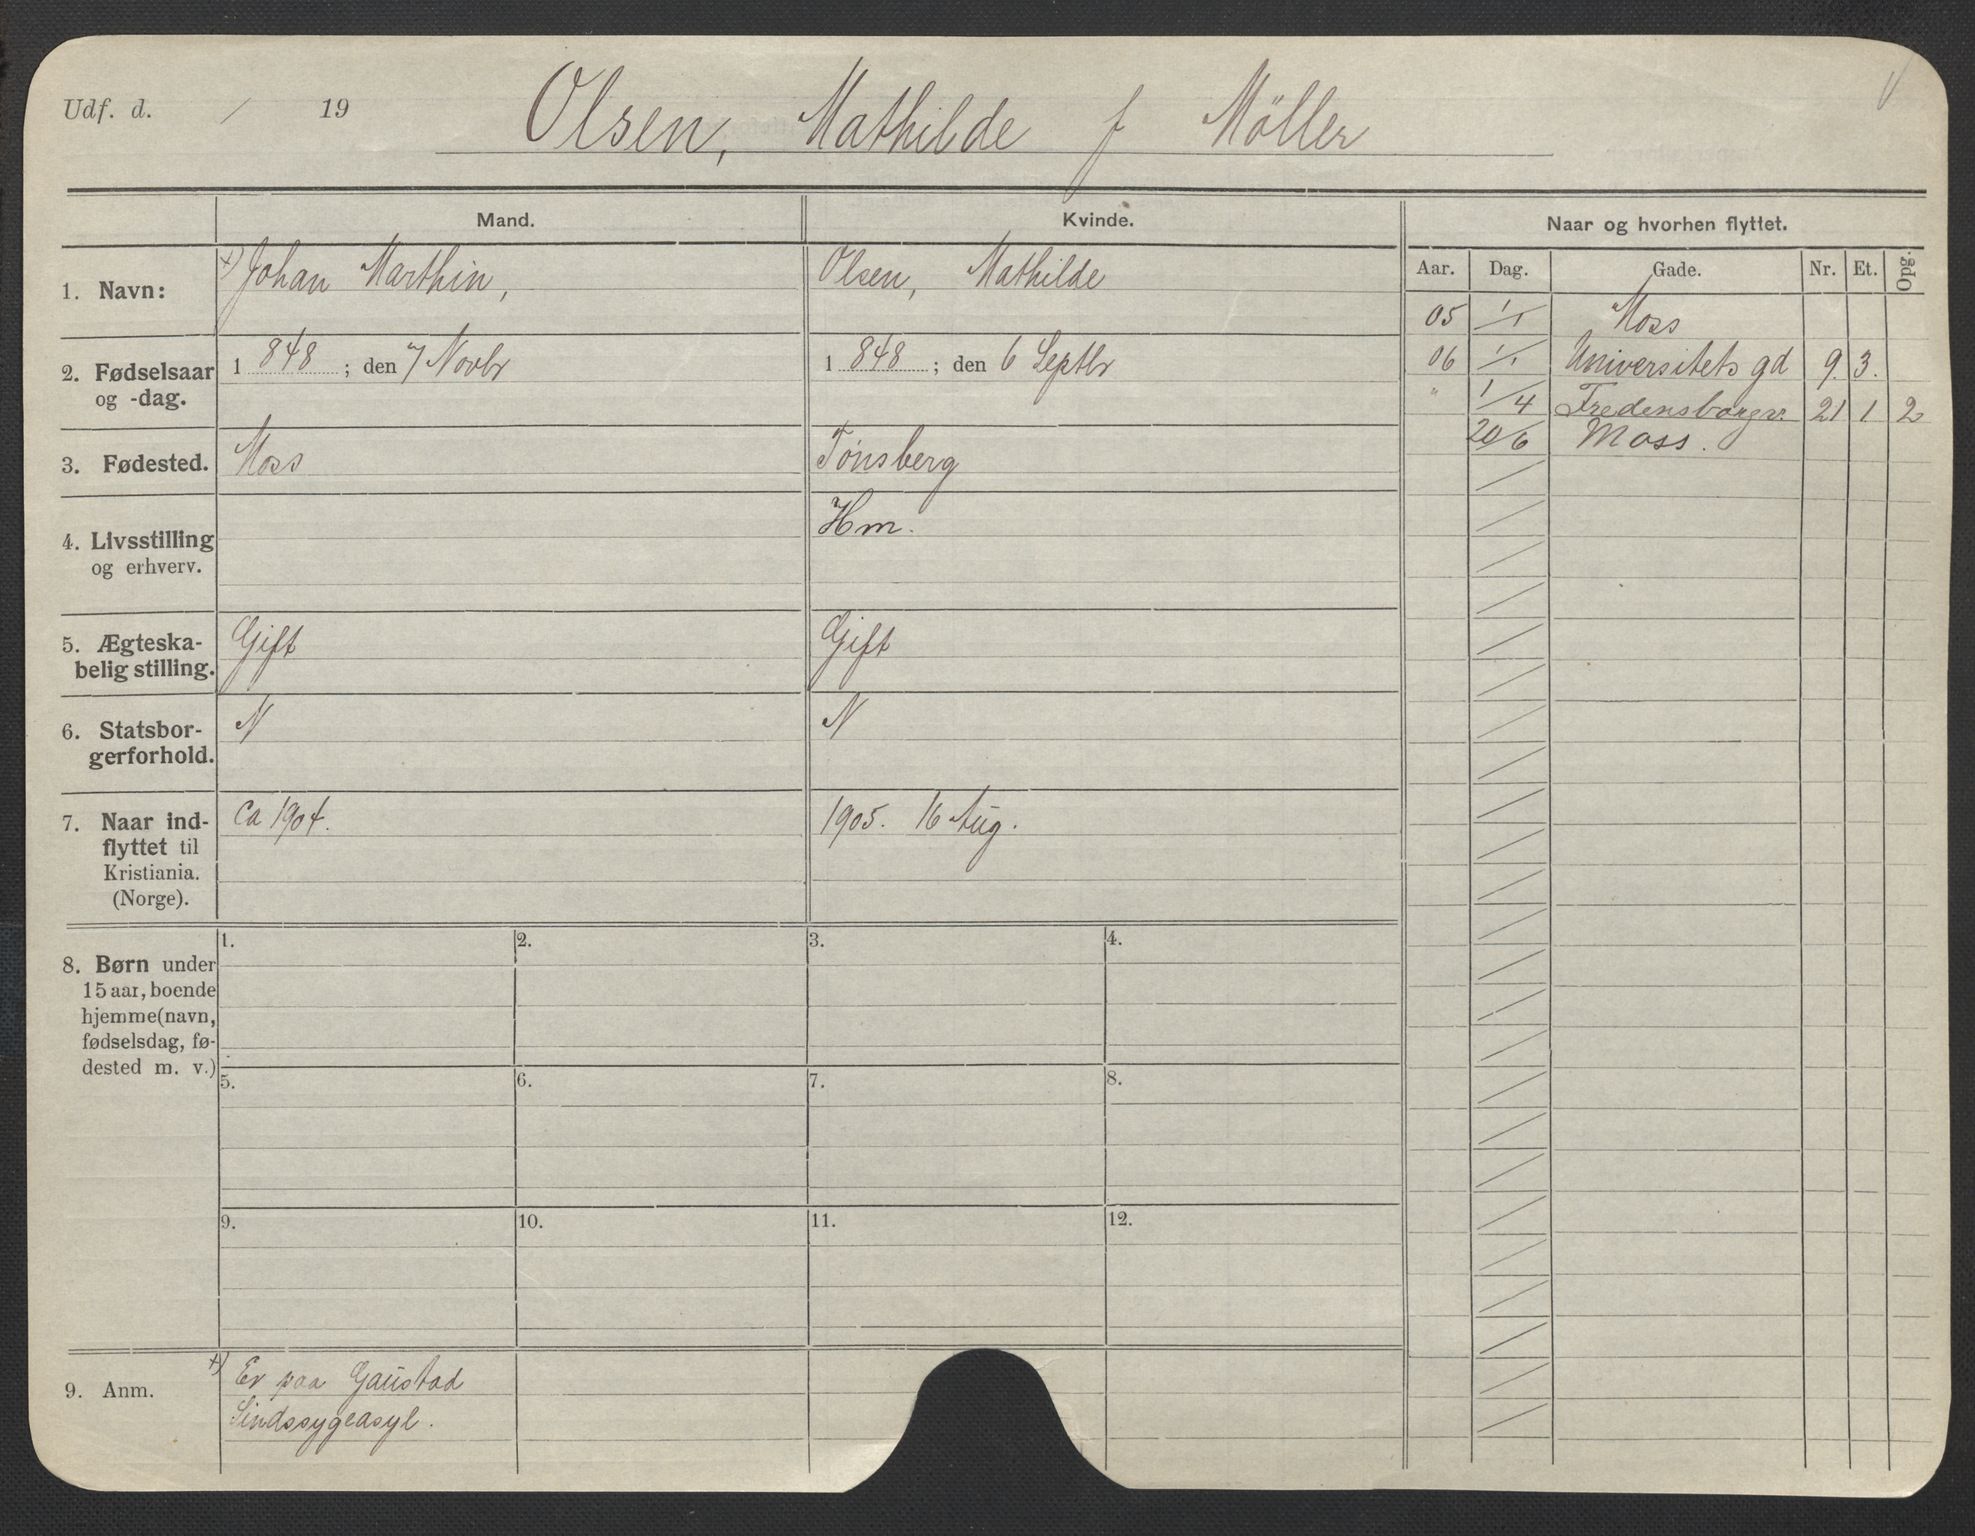 Udf. d. / 19
Olsen, Mathilde f Møller
Mand.
Kvinde.
1. Navn:
+) Johan Marthin,
Olsen, Mathilde
2. Fødselsaar
og -dag.
1 848 ; den 7 Novbr
1 848 ; den 6 Septbr
3. Fødested.
Moss
Tønsberg
4. Livsstilling
og erhverv.
Hm.
5. Ægteska-
belig stilling.
Gift
Gift
6. Statsbor-
gerforhold.
N
N
7. Naar ind-
flyttet til
Kristiania.
(Norge).
Ca 1904.
1905. 16 Aug.
8. Børn under
15 aar, boende
hjemme(navn,
fødselsdag, fø-
dested m. v.)
1. 2. 3. 4.
5. 6. 7. 8.
9. 10. 11. 12.
9. Anm.
+) Er paa Gaustad
Sindssygeasyl.
Naar og hvorhen flyttet.
Aar. Dag. Gade. Nr. Et. Opg.
05 1/1 Moss
06 1/1 Universitets gd 9. 3.
" 1/4 Fredensborgv. 21 1 2
20/6 Moss.